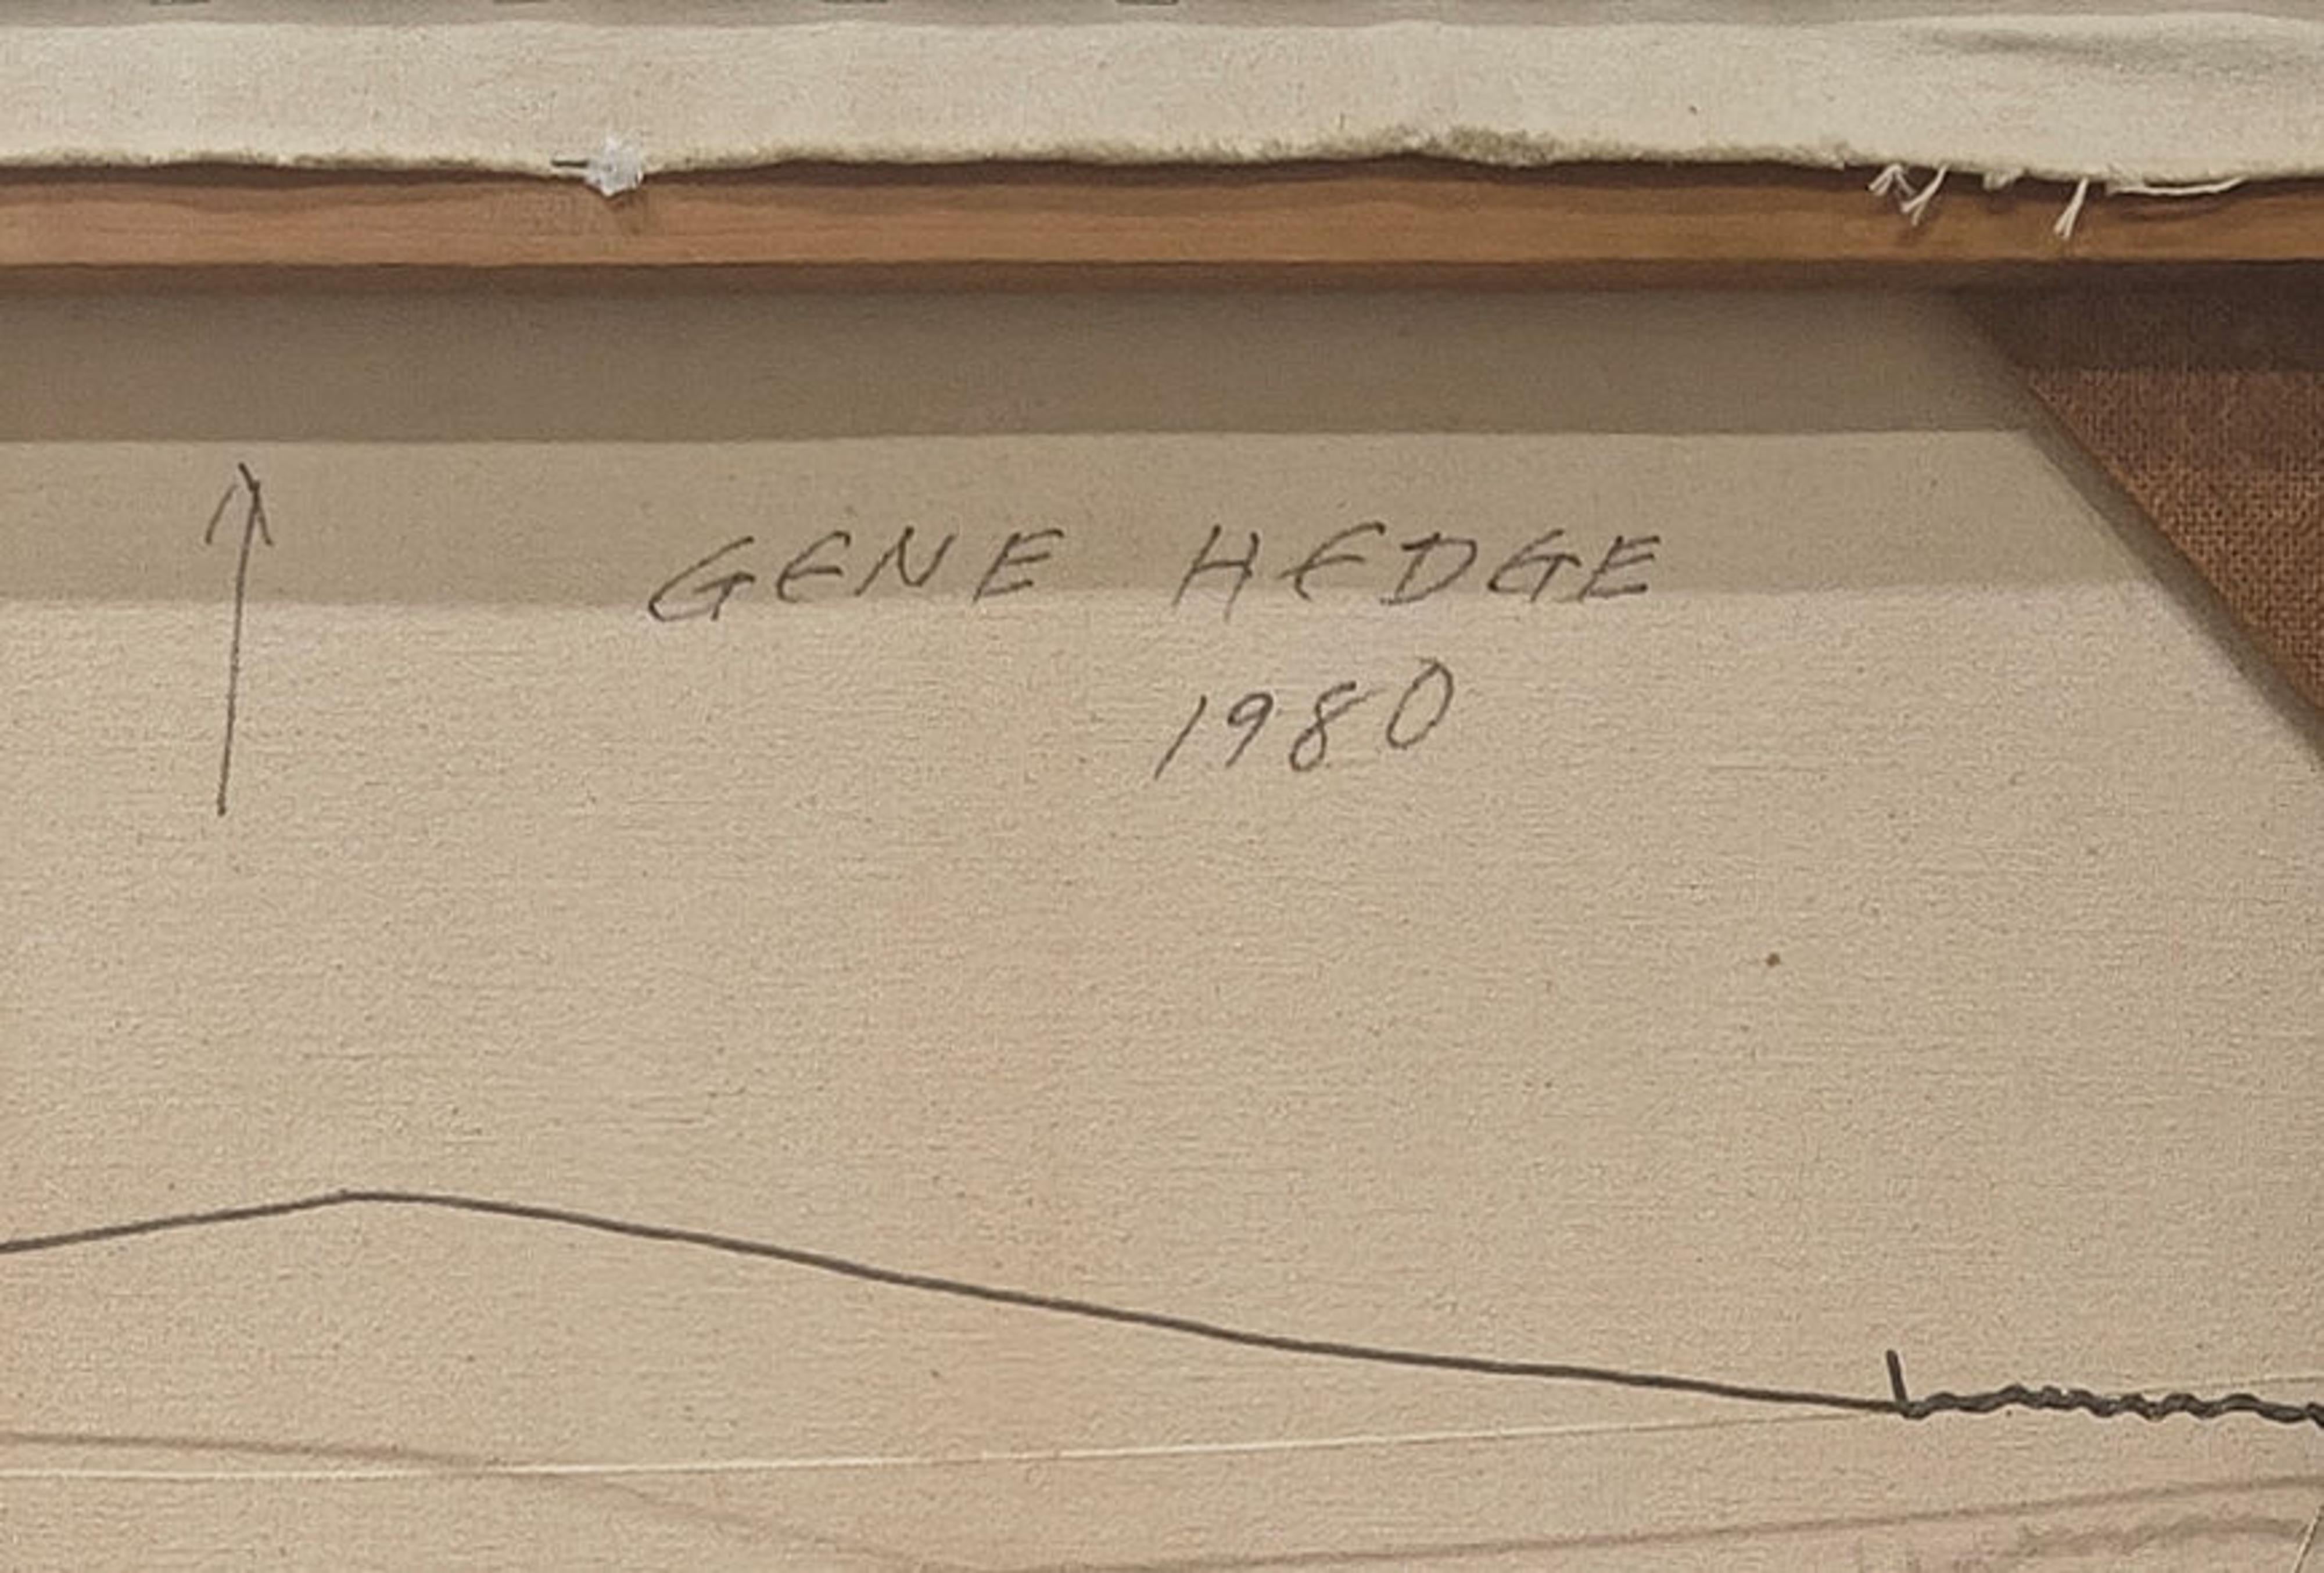 GENE HEDGE
1980